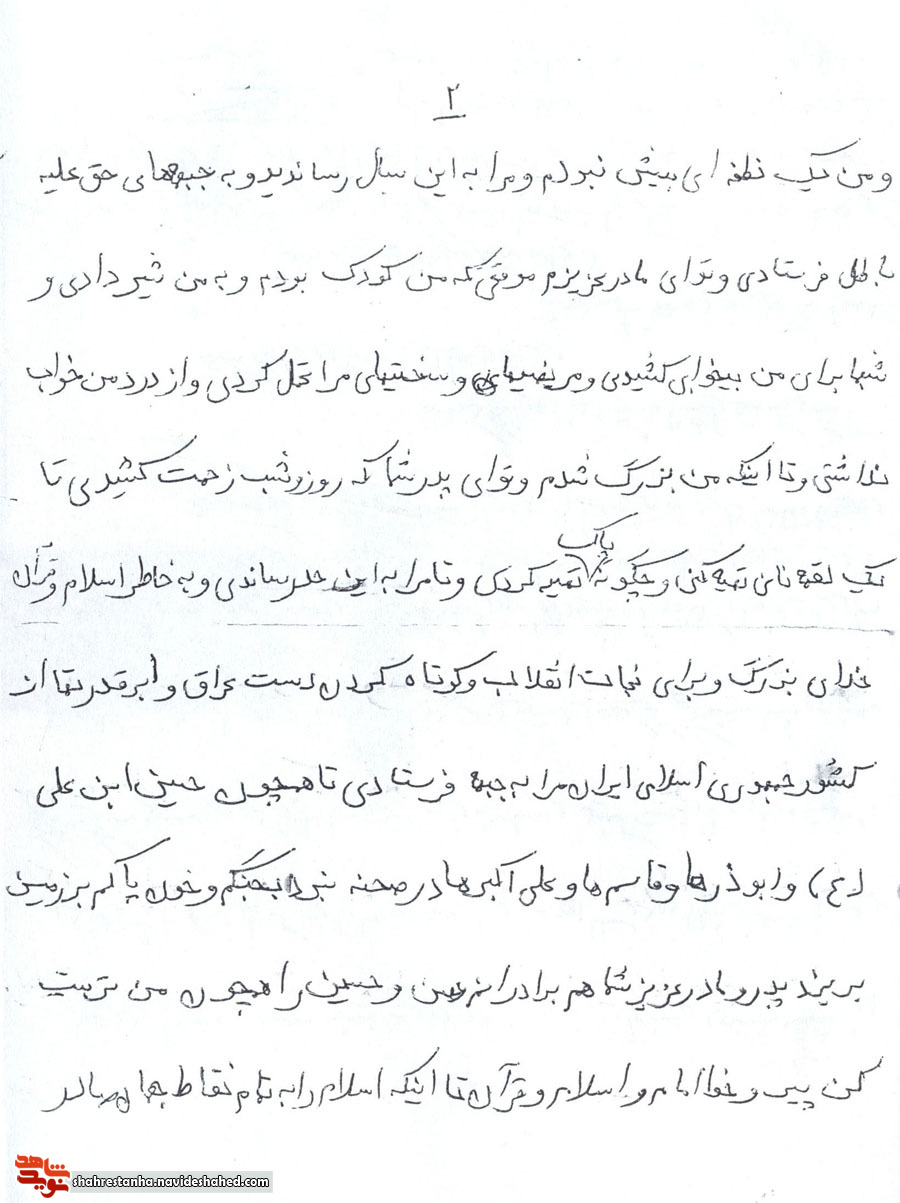 ۲
و من یک نطفه ای بیش نبودم و مرا به این سال رساندید و به جبهه‌های حق علیه
باطل فرستادی و توای مادر عزیزم موقعی که من کودک بودم و به من شیر دادی و
شبها برای من بیخوابی کشیدی و مریضیهای و سختیهای مرا تحمل کردی و از درد من خواب
نداشتی و تا اینکه من بزرگ شدم و توای پدر شما که روز و شب زحمت کشیدی تا
یک لقمه نانی تهیه کنی و چگونه پاک تهیه کردی و تا مرا به این حد رساندی و به خاطر اسلام و قرآن
خدای بزرگ و برای نجات انقلاب و کوتاه کردن دست عراق و ابرقدرتها از
کشور جمهوری اسلامی ایران مرا به جبهه فرستادی تا همچون حسین ابن علی
(ع) و ابوذرها و قاسم ها و علی اکبرها در صحنه نبرد بجنگم و خون پاکم بر زمین
بریزد پدر و مادر عزیز شما هم برادرانم حسن و حسین را همچون من تربیت
کن پیرو خط امام و اسلام و قرآن تا اینکه اسلام را به تمام نقاط جهان صادر
نوید شاهد
shahrestanha.navideshahed.com